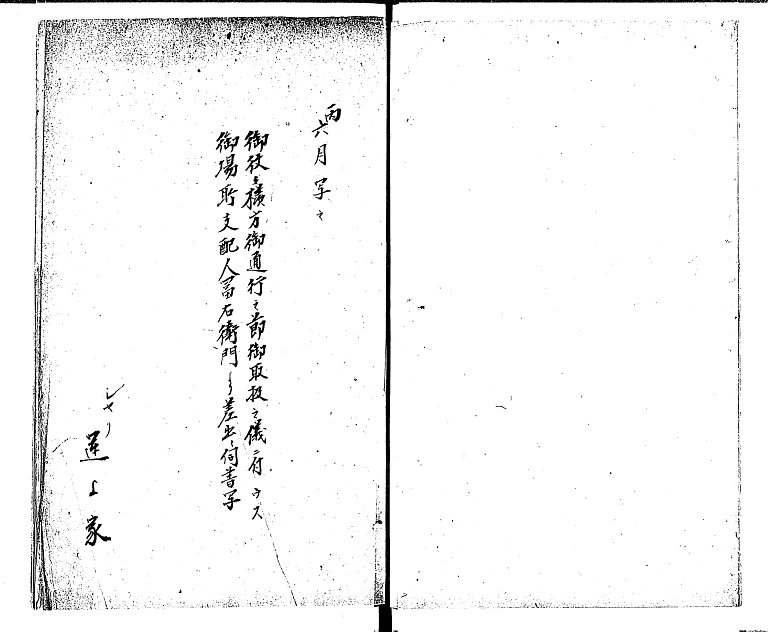 丙六月写之
御役々様方御通行之節御取扱之儀ニ付ウス
御場所支配人冨右衛門ゟ差出候伺書写
シャリ
運上家